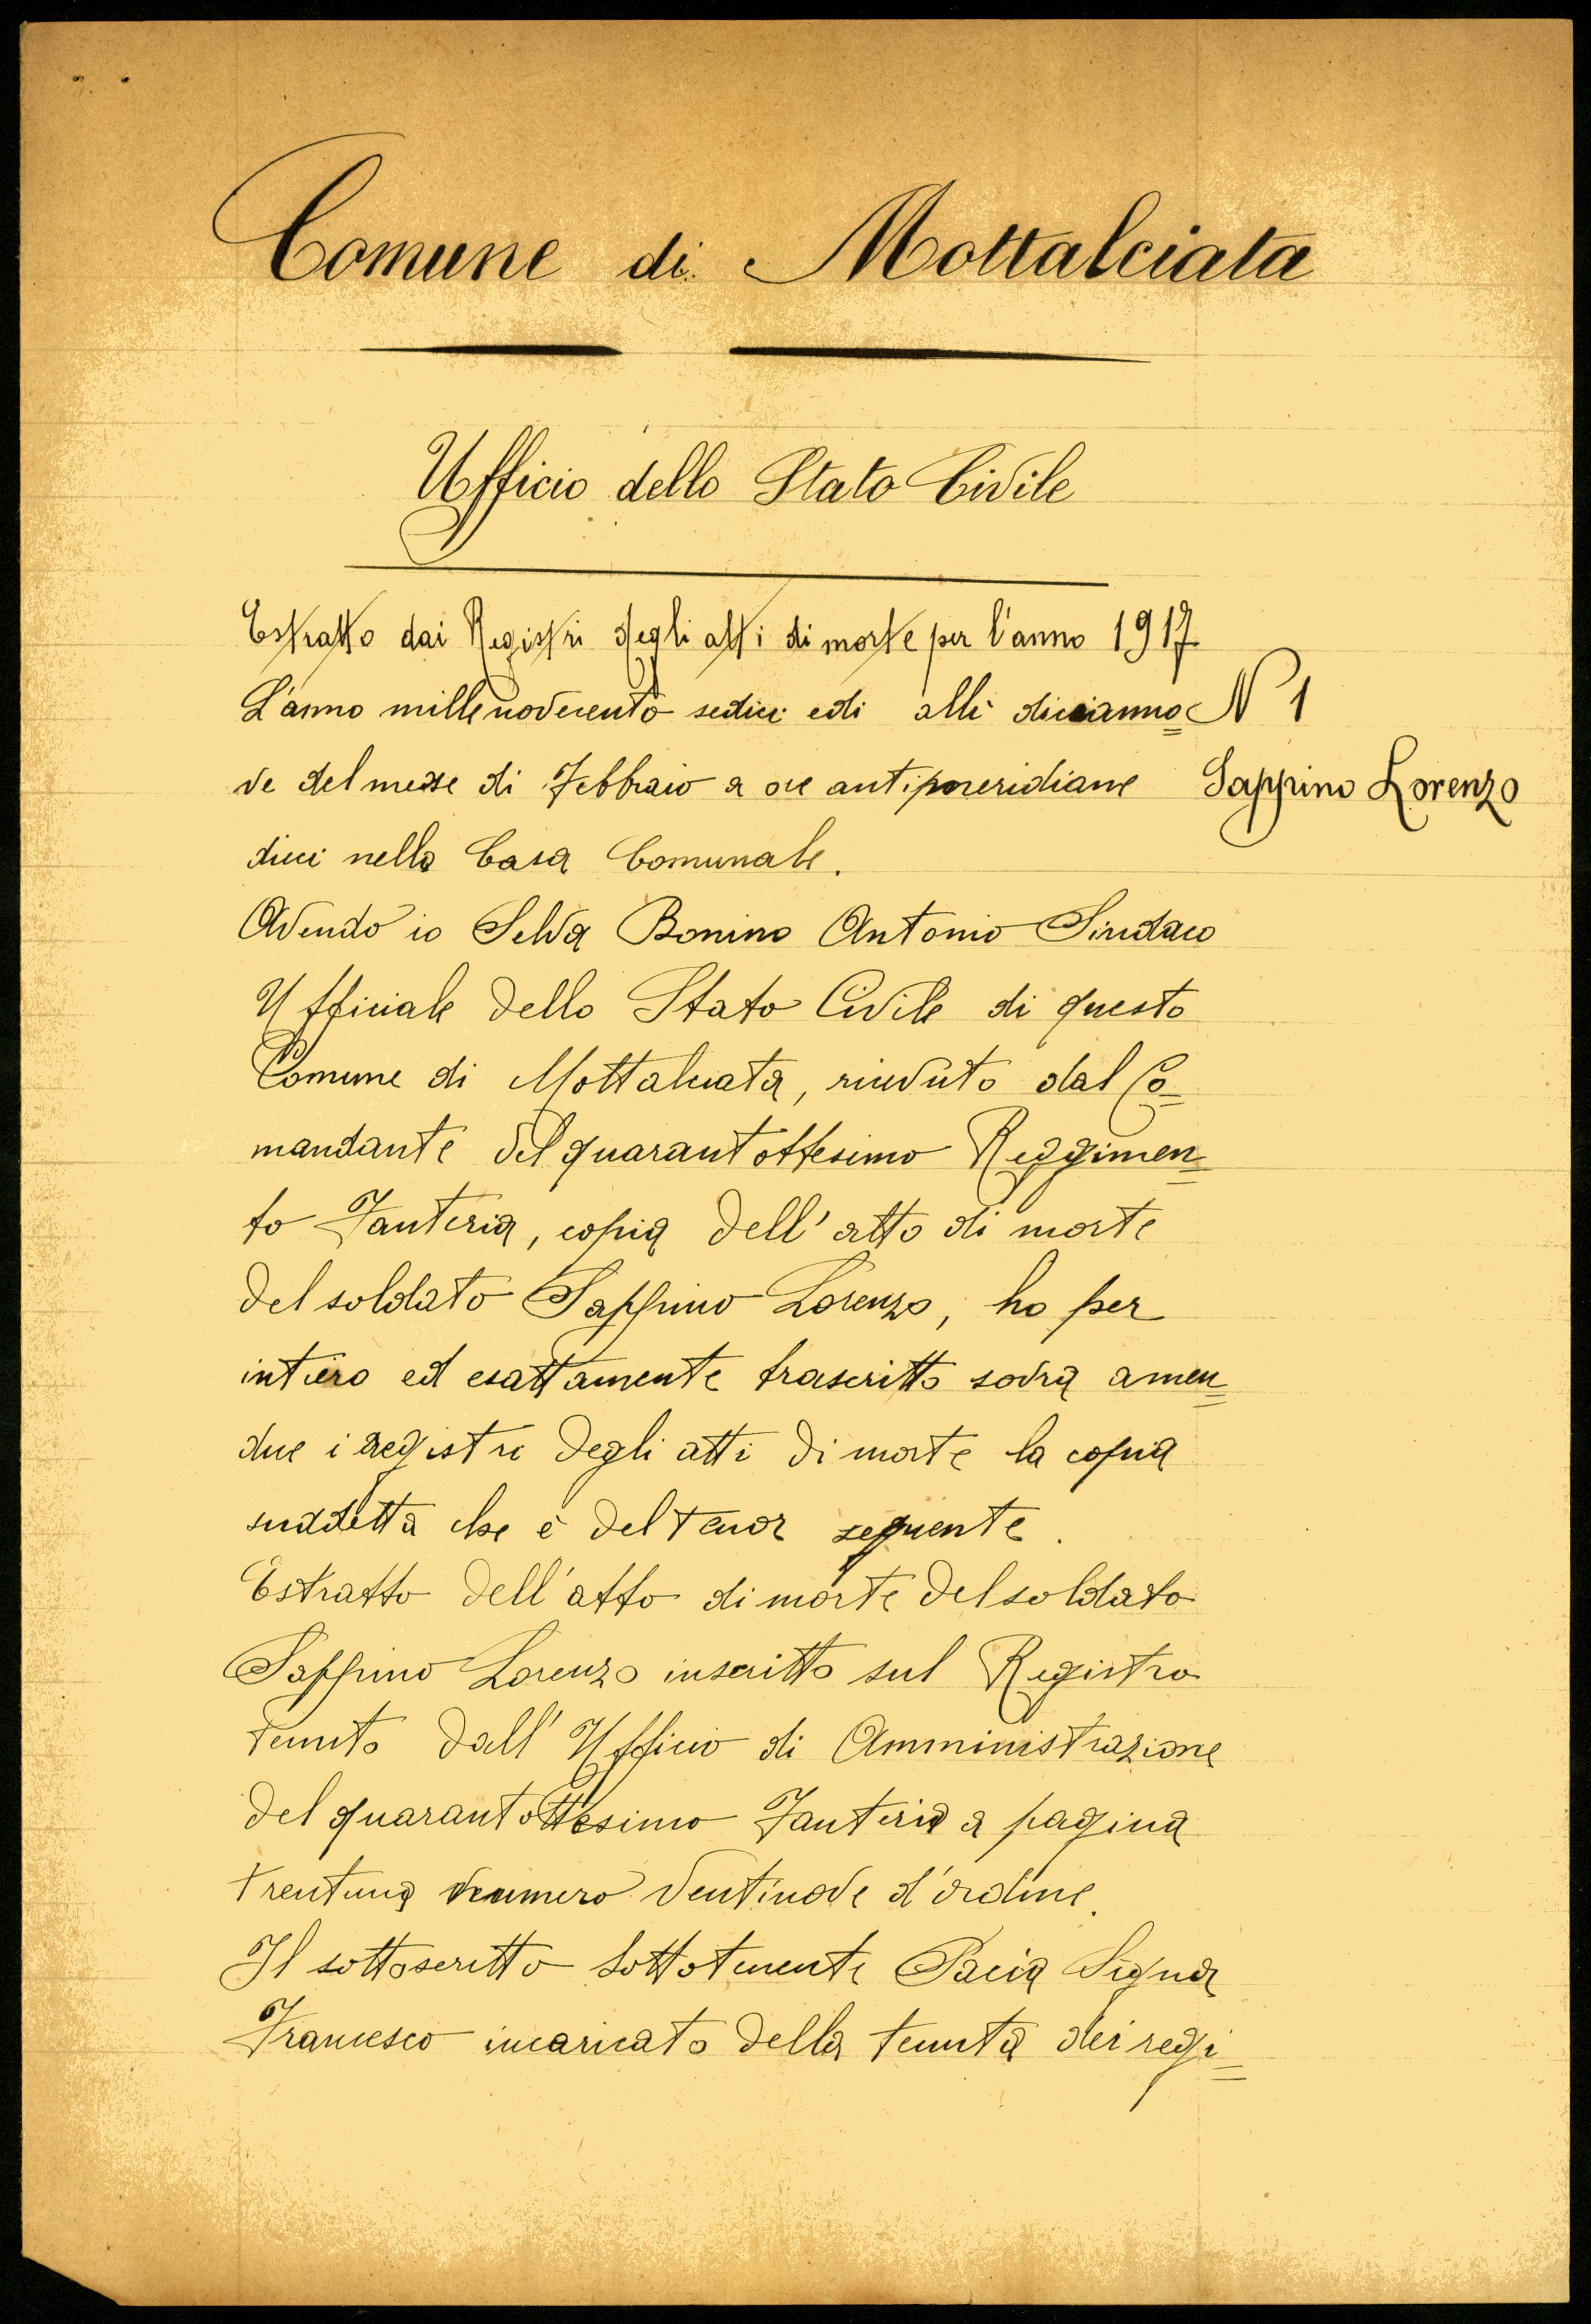 Comune di Mottalciata
Ufficio dello Stato Civile
Estratto dai Registri degli atti di morte per l'anno 1917
L'anno millenovecento sedici edi alli diecianno= N 1
ve del mese di Febbraio a ore antimeridiane Sappino Lorenzo
dieci nella Casa Comunale.
Avendo io Selva Bonino Antonio Sindaco
Ufficiale dello Stato Civile di questo
Comune di Mottalciata, ricevuto dal Co=
mandante del quarantottesimo Reggimen=
to Fanteria, copia dell'atto di morte
del soldato Sappino Lorenzo, ho per
intiero ed esattamente trascritto sovra amen=
due i registri degli atti di morte la copia
suddetta che è del tenor seguente.
Estratto dell'atto di morte del soldato
Sappino Lorenzo inscritto sul Registro
tenuto dall'Ufficio di Amministrazione
del quarantottesimo Fanteria a pagina
trentuna numero ventinove d'ordine.
Il sottoscritto Sottotenente Pacia
Francesco incaricato della tenuta dei regi=